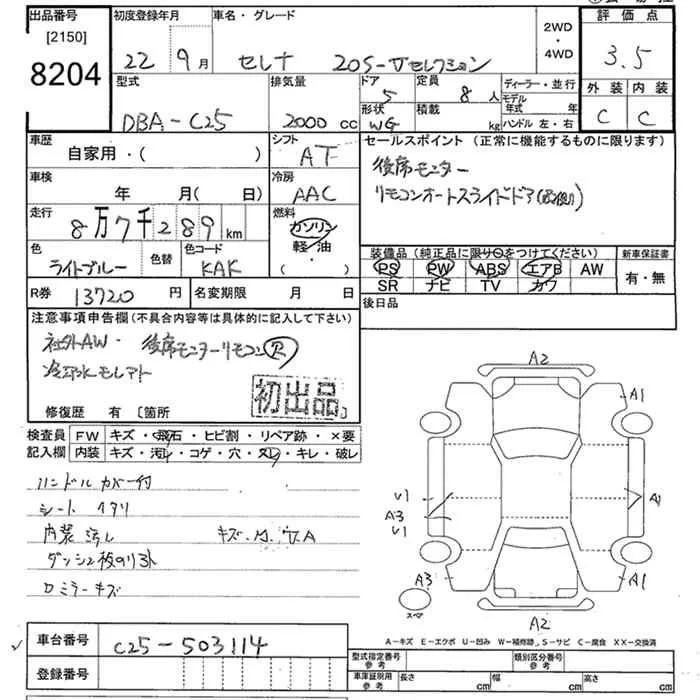 出品番号 初度登録年月 車名・グレード 評価点
[2150]
8204
22 9月 セレナ 20S-Vセレクション 2WD・4WD 3.5
型式 排気量 ドア 定員 ディーラー・並行 外装 内装
DBA-C25 2000 cc 5 8人 モデル年式 年 C C
形状 積載 ハンドル 左・右
WG kg
車歴 シフト セールスポイント (正常に機能するものに限ります)
自家用・( ) AT 後席モニター
車検 冷房 リモコンオートスライドドア
年 月( 日) AAC
走行 燃料
8万7千289km ガソリン
軽・油
・( )
色 色替 色コード 装備品 (純正品に限り○をつけてください) 新車保証書
ライトブルー KAK PS PW ABS エアB AW 有・無
SR ナビ TV カワ
R券 13720円 名変期限 月 日 後日品
注意事項申告欄(不具合内容等は具体的に記入して下さい)
社外AW・後席モニターリモコン欠
冷却水モレアト
初出品
修復歴 有 [箇所
検査員 FW キズ・飛石・ヒビ割・リペア跡・×要
記入欄 内装 キズ・汚レ・コゲ・穴・スレ・キレ・破レ
ハンドルカバー付
シートヘタリ
内装汚レ
ロミラーキズ
A2
A1
U1
A3
U1
A1
A3
A1
スペア
A2
A-キズ E-エクボ U-凹み W-補修跡 S-サビ C-腐食 XX-交換済
車台番号 C25-503114
登録番号
型式指定番号 参考 類別区分番号 参考
車庫証明用 参考 長さ cm 幅 cm 高さ cm